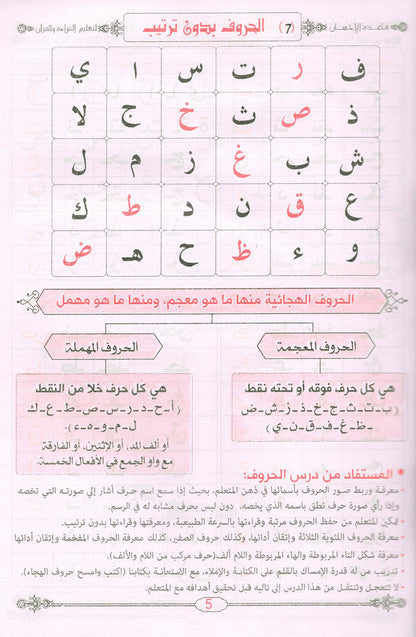 قاعدة الإحسان
(7) الحروف بدون ترتيب
لتعليم القراءة والقرآن
ف ر ت س ا ي
ذ ص ث خ ج لا
ش ب غ ز م ل
ع ق ن د ط ك
و ء ظ ح هـ ض
الحروف الهجائية منها ما هو معجم، ومنها ما هو مهمل
الحروف المعجمة
هي كل حرف فوقه أو تحته نقط
(ب-ت-ث-ج-خ-ذ-ز-ش-ض
-ظ-غ-ف-ق-ن-ي)
الحروف المهملة
هي كل حرف خلا من النقط
(أ-ح-د-ر-س-ص-ط-ع-ك
ل-م-و-ه-ء).
أو ألف المد، أو الإثنين، أو الفارقة
مع واو الجمع في الأفعال الخمسة.
• المستفاد من درس الحروف:
- معرفة وربط صور الحروف بأسمائها في ذهن المتعلم، بحيث إذا سمع اسم حرف أشار إلي صورته التي تخصه
وإذا رأي صورة حرف نطق باسمه الذي يخصه، دون ليس بحرف مشابه له في الرسم.
- تمكن المتعلم من حفظ الحروف مرتبة وقراءتها بالسرعة الطبيعية، ومعرفتها وقراءتها بدون ترتيب.
- معرفة الحروف اللثوية الثلاثة وإتقان أدائها، وكذلك حروف الصفير، كذلك معرفة الحروف المفخمة وإتقان أدائها
- معرفة شكل التاء المربوطة والهاء المربوطة واللام ألف(حرف مركب من اللام والألف).
- تدريب من له قدرة الإمساك بالقلم على الكتابة والإملاء، مع الاستعانة بكتابنا (اكتب وامسح حروف الهجاء).
- لا تتعجل وتنتقل من هذا الدرس إلى تاليه قبل تحقيق أهدافه مع المتعلم.
5